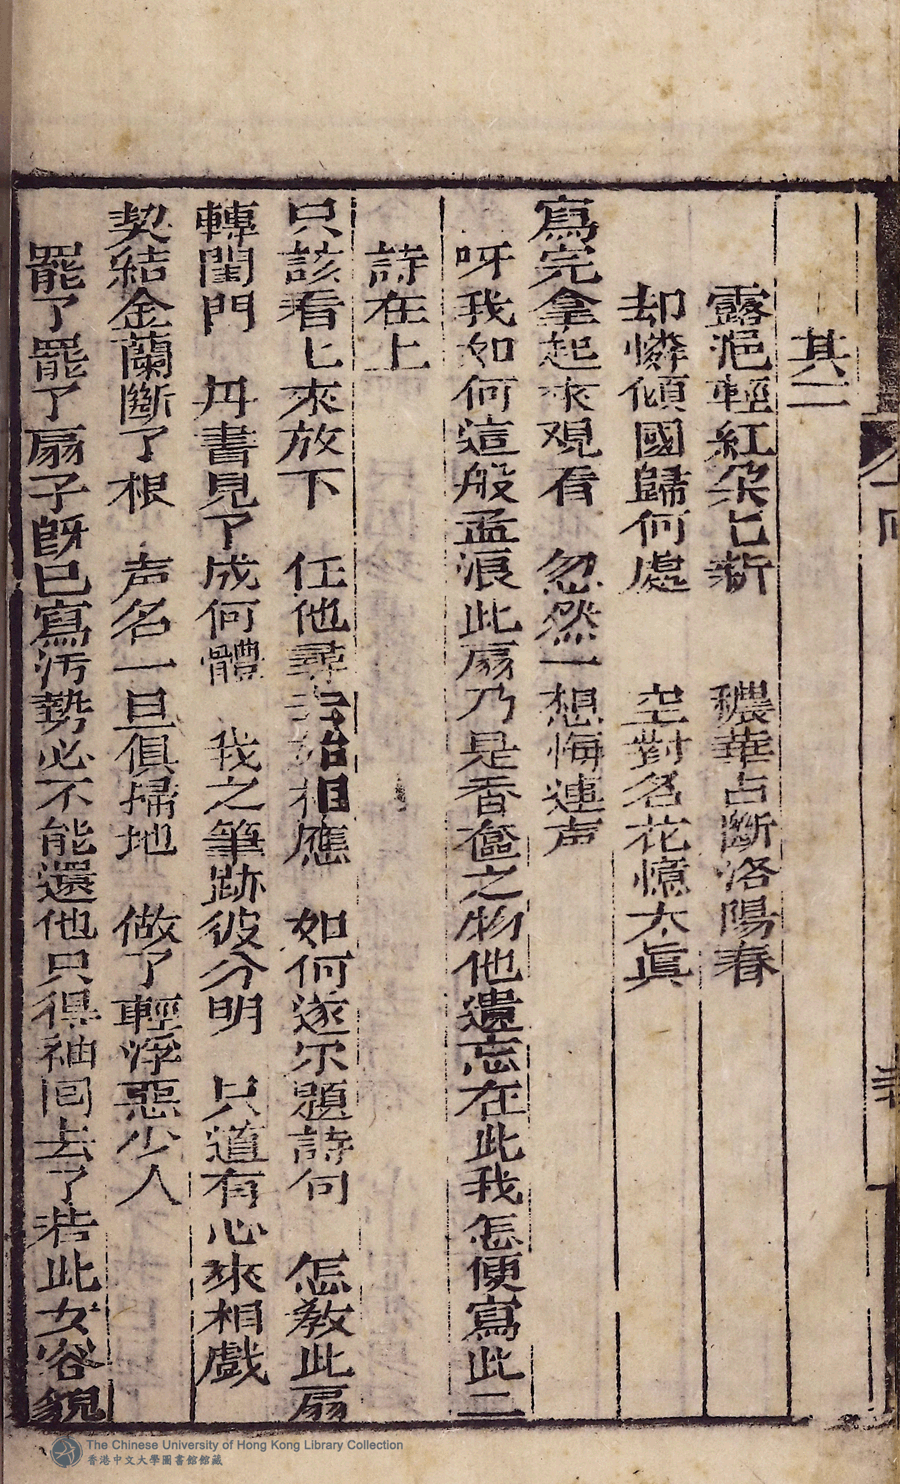 其二
露浥輕紅朶匕新　穠華占斷洛陽春
却憐傾國歸何處　空對名花憶太眞
寫完拿起來观看　忽然一想悔連声
呀我如何這般孟浪此扇乃是香奩之物他遺忘在此我怎便寫此二
詩在上
只該看匕來放下　任他尋去始相應　如何遂尔題詩句　怎敎此扇
轉閨門　丹書見了成何體　我之筆跡彼分明　只道有心來相戲
契結金蘭斷了根　声名一旦俱掃地　做了輕浮惡少人
罷了罷了扇子旣已寫汚勢必不能還他只得袖囘去了若此女容貌
The Chinese University of Hong Kong Library Collection
香港中文大學圖書館館藏